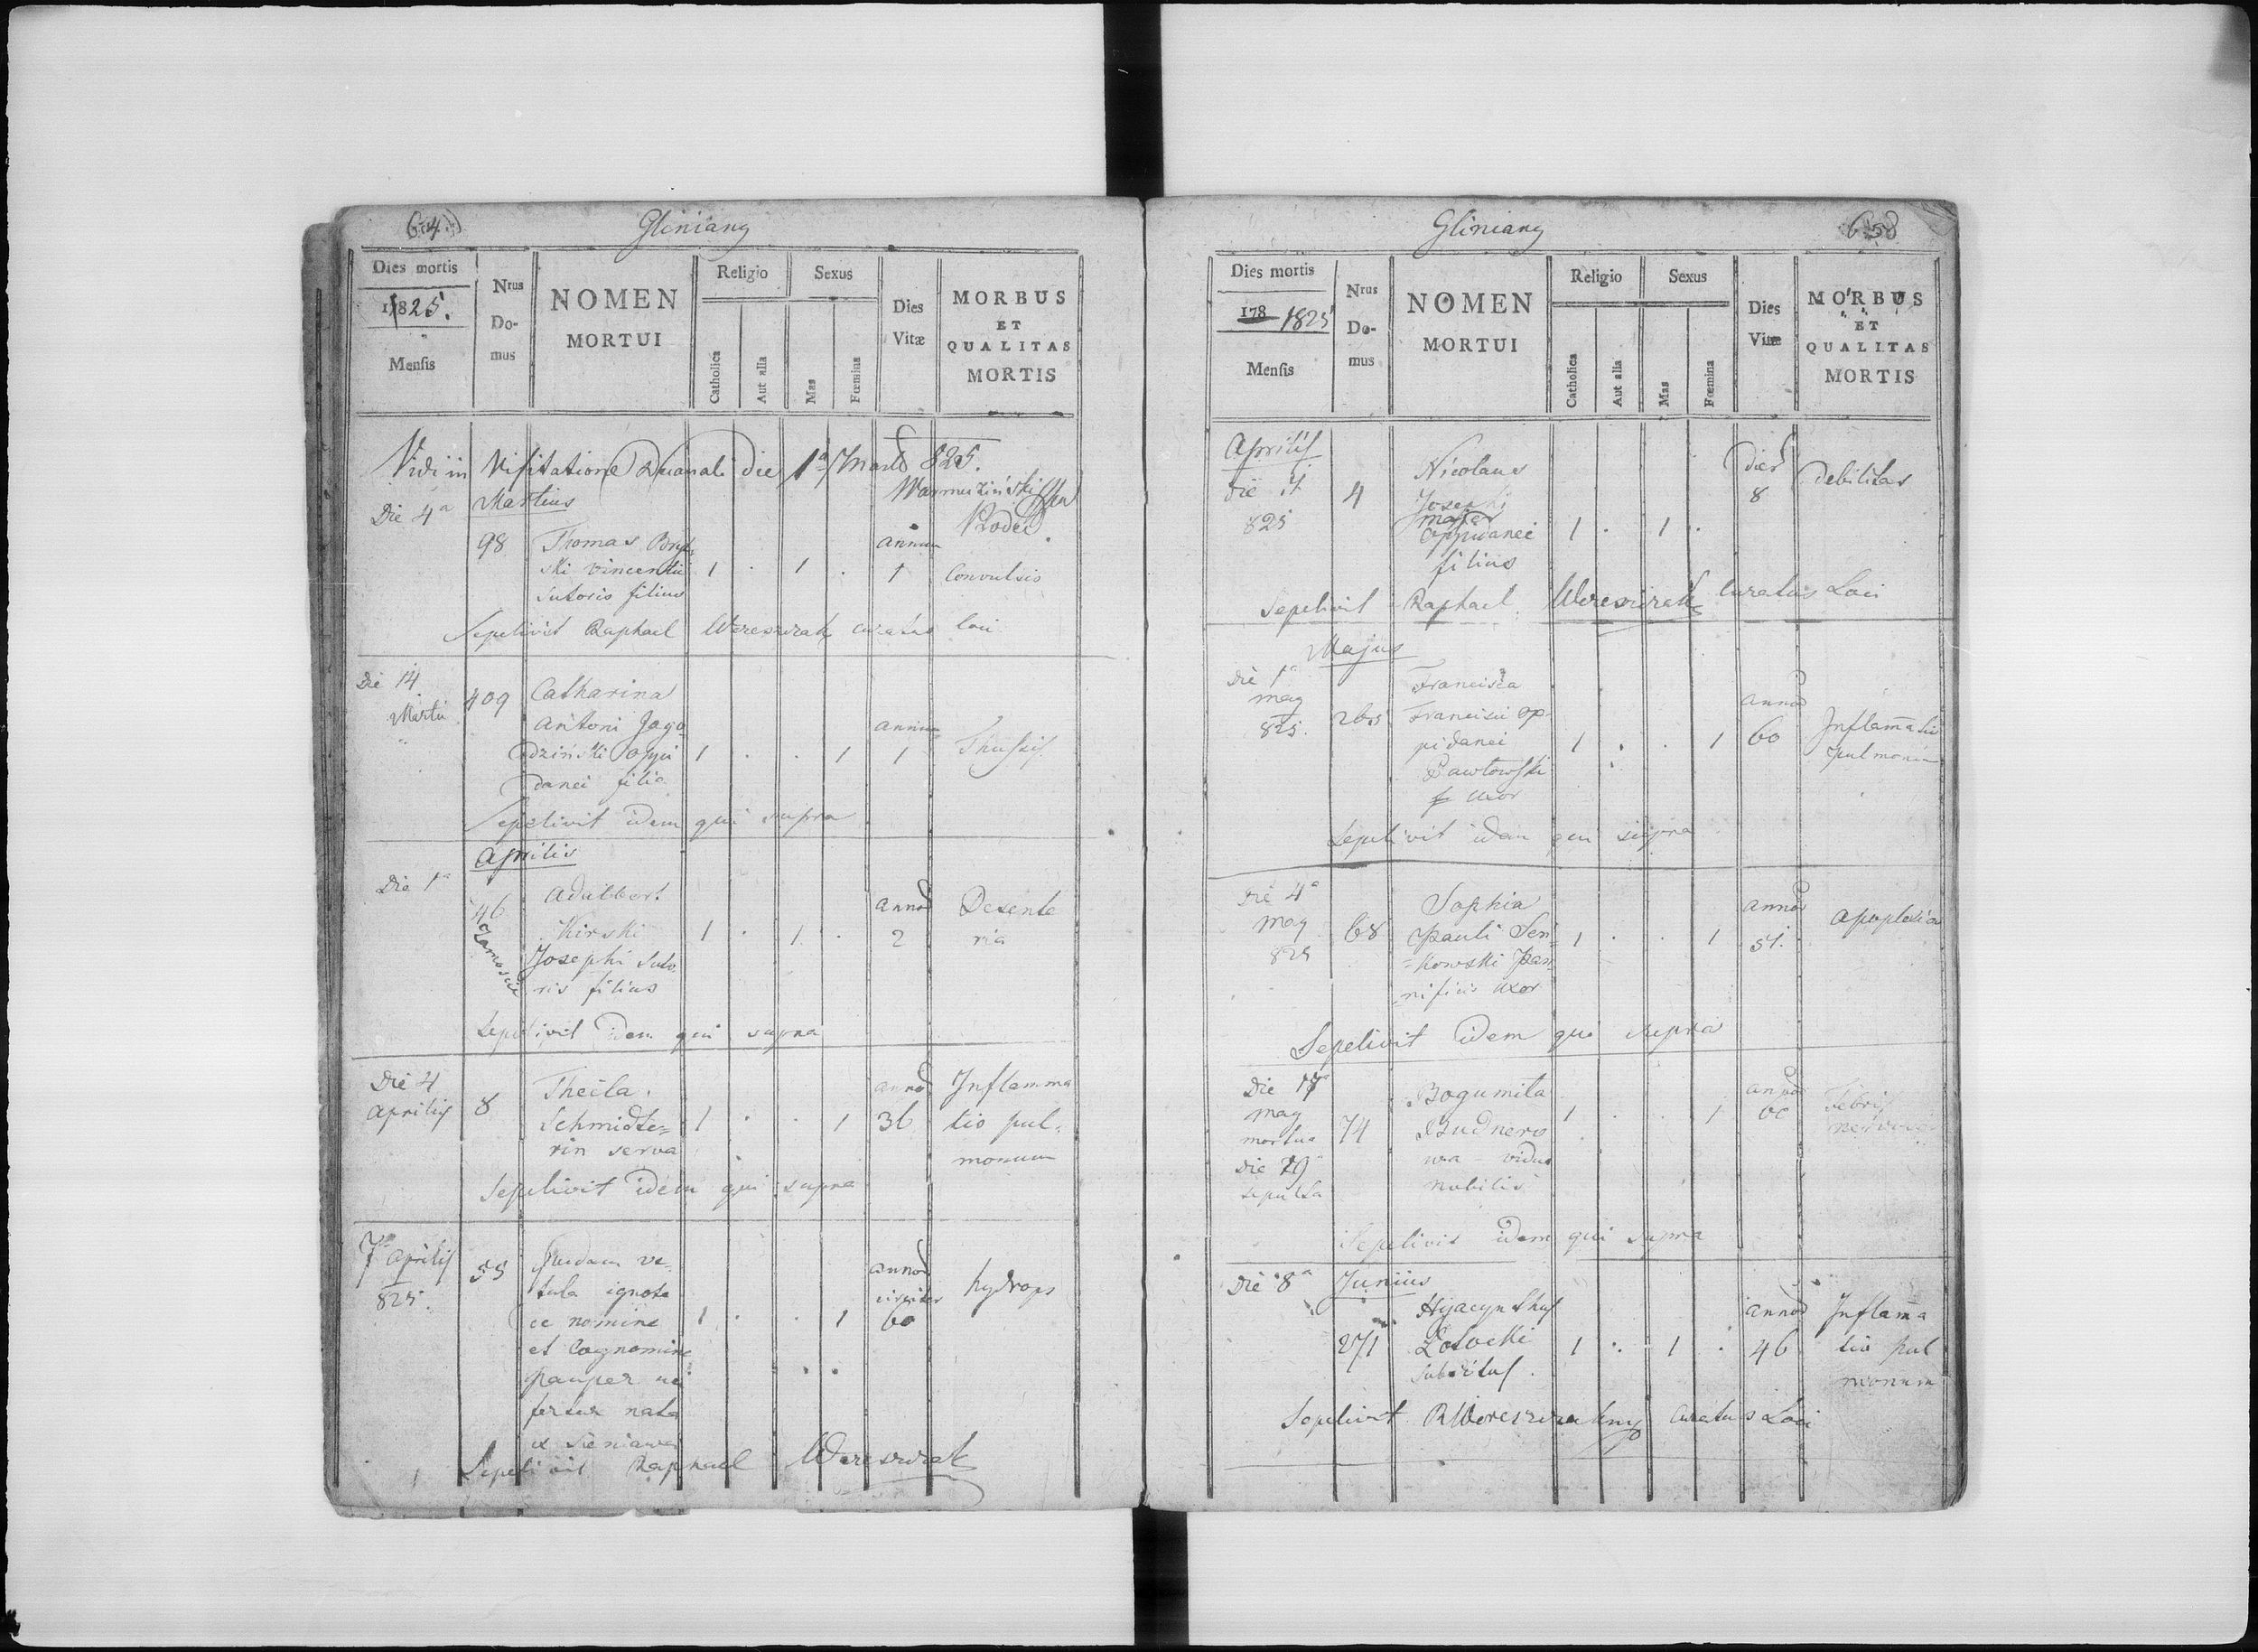 64
Gliniany
Dies mortis
1825.
Menſis
Nrus
Do-
mus
NOMEN
MORTUI
Religio
Catholica
Aut alia
Sexus
Mas
Fœmina
Dies
Vitæ
MORBUS
ET
QUALITAS
MORTIS
Vidi in Visitatione Decanali die 1a Martii 825.
Martius
Die 4a
98
Thomas
ski Vincentii
sutoris filius
1 . 1 .
annum
1
Convulsis
Sepelivit Raphael Wereszczak curatus loci
Die 14
Martii
409
Catharina
Antoni Jago
dziński oppi
danei filia
1 . . 1
annum
1
Thussis
Sepelivit idem qui supra
Aprilis
Die 1a
46
Zamoscie
Adalbert
Kirski
Josephi suto
ris filius
1 . 1 .
annos
2
Desente
ria
Sepelivit idem qui supra
Die 4
Aprilis
8
Thecla
Schmidte=
rin serva
1 . . 1
annos
36
Inflamma
tio pul
monum
Sepelivit idem qui supra
7a Aprilis
825.
Quedam ve
tula ignota
ce nomine
et Cognomine
pauper uti
fertur nata
ex Sieniawa
1 . . 1
annos
circiter
60
hydrops
Sepelivit Raphael Wereszczak
Gliniany
Dies mortis
178 1825
Menſis
Nrus
Do-
mus
NOMEN
MORTUI
Religio
Catholica
Aut alia
Sexus
Mas
Fœmina
Dies
Vitæ
MORBUS
ET
QUALITAS
MORTIS
Aprilis
825
4
Nicolaus
Josephi
oppidanei
filius
1 . 1 .
dies
8
debilitas
Sepelivit Raphael Wereszczak Curatus Loci
Majus
Die 1a
May
825.
265
Francisca
Francisci op
pidanei
Pawłowski
uxor
1 . . 1
annos
60
Inflam̄atio
pulmonum
Sepelivit idem qui supra
Die 4a
May
825
68
Sophia
Pauli Sen
=kowski pan
nificis uxor
1 . . 1
annos
51.
apoplexia
Sepelivit idem qui supra
Die 17
May
mortua
Die 19
sepulta
74
Bogumiła
Budnero
wa vidua
nobilis
1 . . 1
annos
60
Febris
nervosa
Sepelivit idem qui supra
Die 8a Junius
271
Hyacynthus
Łotocki
subditus
1 . 1 .
annos
46
Inflam̄a
tio pul
monum
Sepelivit R Wereszczak Curatus Loci